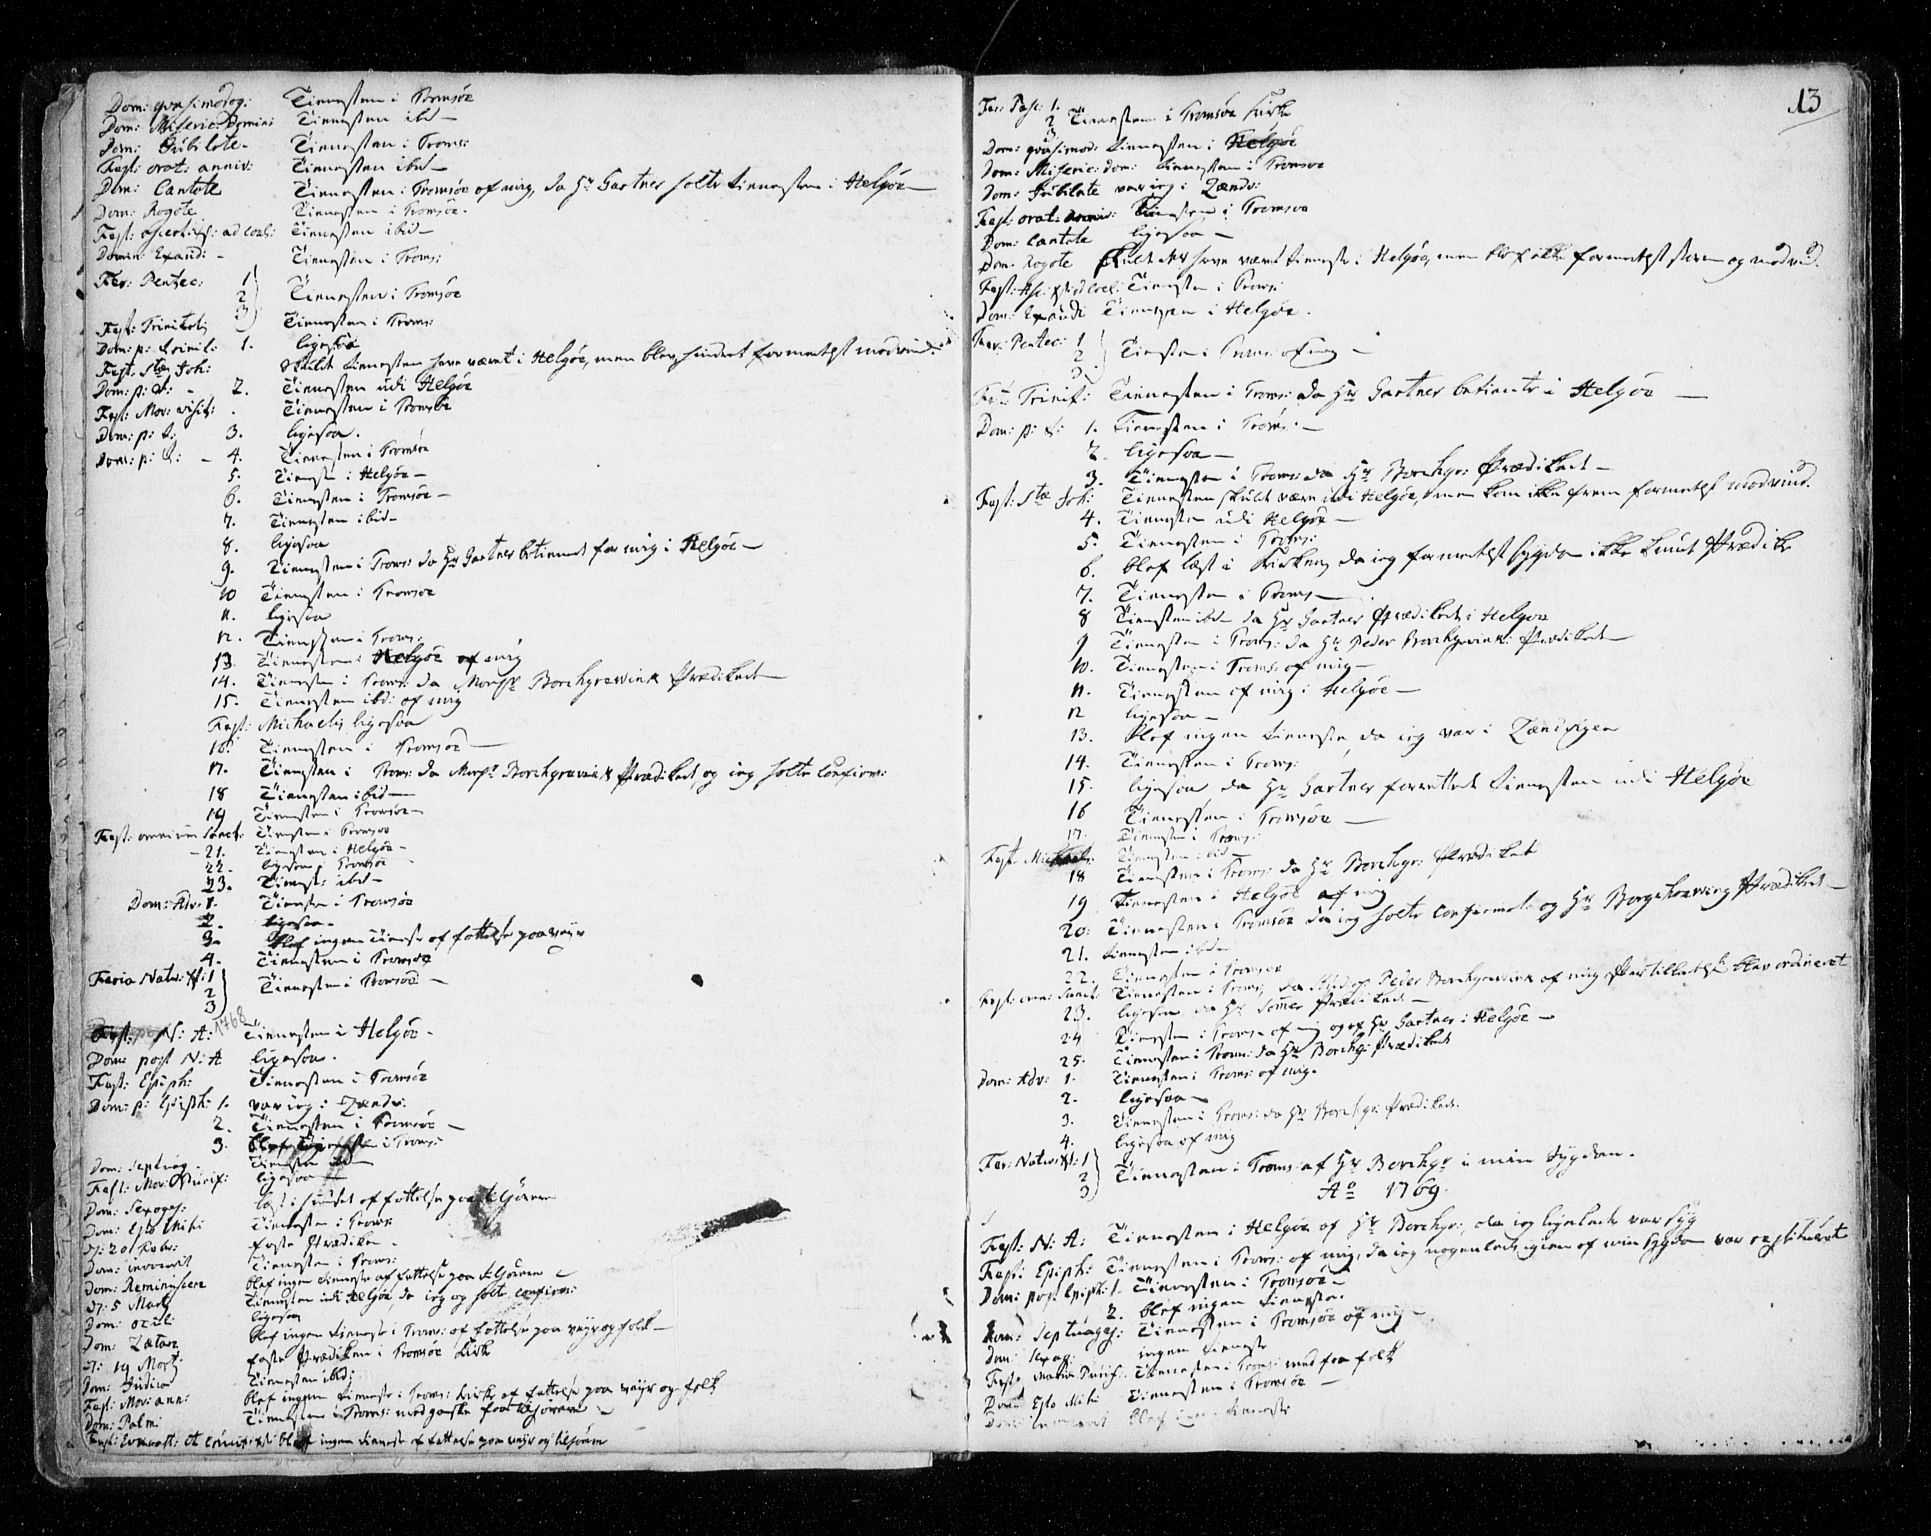 Dom: qvasimodog: Tienesten i Tromsøe
Dom: Miseric: Domini Tienesten ibid—
Dom: Jubilate— Tienesten i Troms:
Fest: orat: anniv: Tienesten ibid—
Dom: Cantate Tienesten i Tromsøe af mig, da Hr Gartner holte tienesten i Helgøe—
Dom: Rogate Tienesten i Tromsøe.
Fest: ascens: ad coel: Tienesten ibid—
Domin: Exaudi— Tienesten i Troms:
Fer: Pentec: 1
2 Tienesten i Tromsøe
3
Fest: Trinitatis Tienesten i Troms:
Dom: p: trinit: 1. ligesaa
Fest: Stæ Joh: Skulde tienesten have været i Helgøe, men blev hindret formedelst modvind.
Dom: p: t: - 2. Tienesten udi Helgøe
Fest: Mar: visit: Tienesten i Tromsøe
Dom: p: t: 3. ligesaa.
Dom: p: t: - 4. Tienesten i Tromsøe
5. Tienesten i Helgøe—
6. Tienesten i Tromsøe—
7. Tienesten ibid—
8. ligesaa
9. Tienesten i Troms: da Hr Gartner betiente for mig i Helgøe—
10 Tienesten i Tromsøe
11. ligesaa
12. Tienesten i Troms:
13. Tienesten i Helgøe af mig
14. Tienesten i Troms: da Monsr Borchgrewink Prædikede—
15. Tienesten ibid: af mig
Fest: Michaelis ligesaa
16. Tienesten i Tromsøe—
17. Tienesten i Troms: da Monsr Borchgrevink Prædikede, og ieg holte Confirm:
18 Tienesten ibid—
19 Tienesten i Tromsøe—
Fest: omnium Sanct: Tienesten i Tromsøe
- 21. Tienesten i Helgøe—
22. ligesaa i Tromsøe
23. Tienest: ibid—
Dom: Adv: 1. Tienesten i Tromsøe
2. ligesaa.
3. blef ingen Tieneste af fattelse paa veyr
4. Tienesten i Tromsøe
Feria Nativ: Xti: 1
2 Tienesten i Tromsøe—
3
1768
Fest: N: A: Tienesten i Helgøe—
Dom: post N: A ligesaa.
Fest: Epiph: Tienesten i Tromsøe
Dom: p: Epiph: 1. var ieg i Lands:
2. Tienesten i Tromsøe—
3. i Troms:
Dom: Septuag— Tienesten ibid
Fest: Mar: Purif: ligesaa
Dom: Sexages: af fattelse paa
Dom: Esto Mihi Tienesten i Troms:
D: 20 Febr: faste Prædiken—
Dom: invocavit Tienesten i Troms:
Dom: Reminiscere blef ingen tieneste af fattelse paa
D: 5 Marty Tienesten udi Helgøe, da ieg og holte Confirm:
Dom: oculi ligesaa
Dom: Lætare blef ingen tieneste i Troms: af fattelse paa veyr og folk—
D: 19 Marty faste Prædiken i Tromsøe Kirke
Dom: Judica Tienesten ibid:
Fest: Mar: ann: blef ingen tieneste i Troms: Kirke af fattelse paa veyr og folk
Dom: Palm: Tienesten i Troms: med ganske faa
blef ingen tieneste af fattelse paa veyr og
13
Fer: Pasc: 1.
2 Tienesten i Tromsøe Kirke
3
Dom: qvasimod: tienesten i Helgøe
Dom: Miseric: dom: tienesten i Tromsøe
Dom: Jubilate var ieg i Lands:
Fest: orat: anniv: Tienesten i Tromsøe
Dom: Cantate ligesaa—
Dom: Rogate skulde der have været tieneste i Helgøe, men blef ikke formedelst storm og modvind.
Tienesten i Troms:
Dom: Exaudi Tienesten i Helgøe.
Fer: Pentec: 1
2 Tienesten i Troms: af mig—
3
Fest: Trinit: Tienesten i Troms: da Hr Gartner betiente i Helgøe—
Dom: p: t: 1. Tienesten i Troms:—
2. ligesaa—
3. Tienesten i Troms: da Hr Borchgr: Prædikede—
Fest: Stæ Joh: Tienesten skulde være udi Helgøe, men kom ikke frem formedelst modvind.
4. Tienesten udi Helgøe—
5. Tienesten i Troms:
6. blef læst i Kirken, da ieg formedelst sygdom ikke kunde Prædike
7. Tienesten i Troms—
8 Tienesten ibid— da Hr Gartner Prædikede i Helgøe
9 Tienesten i Troms: da Hr Peder Borchgrewink Prædikede—
10. Tienesten i Troms: af mig—
11. Tienesten af mig i Helgøe—
12 ligesaa—
13. blef ingen tieneste da ieg var i
14. Tienesten i Troms:
15. ligesaa da Hr Gartner forrettede tienesten udi Helgøe
16 Tienesten i Tromsøe—
17. Tienesten i Troms:
Fest: Michael: Tienesten ibid—
18 Tienesten i Troms: da Hr Borchgr: Prædikede
19 Tienesten i Helgøe af mig
20. Tienesten i Tromsøe da ieg holte Confirmat: og Hr Prædikede—
21. tienesten ibid—
22. Tienesten i Tromsøe
Fest: omn: Sanct: Tienesten i Troms, da Peder Borchgrewink af mig blev ordineret
23. ligesaa da Hr Prædikede—
24 Tienesten i Troms: af mig og af Hr Gartner i Helgøe—
25. Tienesten i Troms: da Hr Borchg: Prædikede
Dom: Adv: 1. Tienesten i Troms: af mig.
2. ligesaa—
3. Tienesten i Troms: da Hr Borchgr: Prædikede.
4. ligesaa af mig
Fer: Nativ: Xti: 1
2 Tienesten i Troms: af Hr Borchgr i min Sygdom.
3
Ao 1769.
Fest: N: A: Tienesten i Helgøe af Hr Borchgr:, da ieg ligeledes var syg
Fest: Epiph: Tienesten i Troms: af mig, da ieg nogenledes igien af min sygdom var restitueret
Dom: post Epiph: 1. Tienesten i Tromsøe—
2. blef ingen tieneste.
Dom: Septuages: Tienesten i Tromsøe af mig—
Dom: Sexag: ingen tieneste
Fest: Maria Purif: Tienesten i Troms: med faa folk
Dom: Esto Mihi Tienesten i Tromsøe—
Dom: invocavit blef ingen tieneste